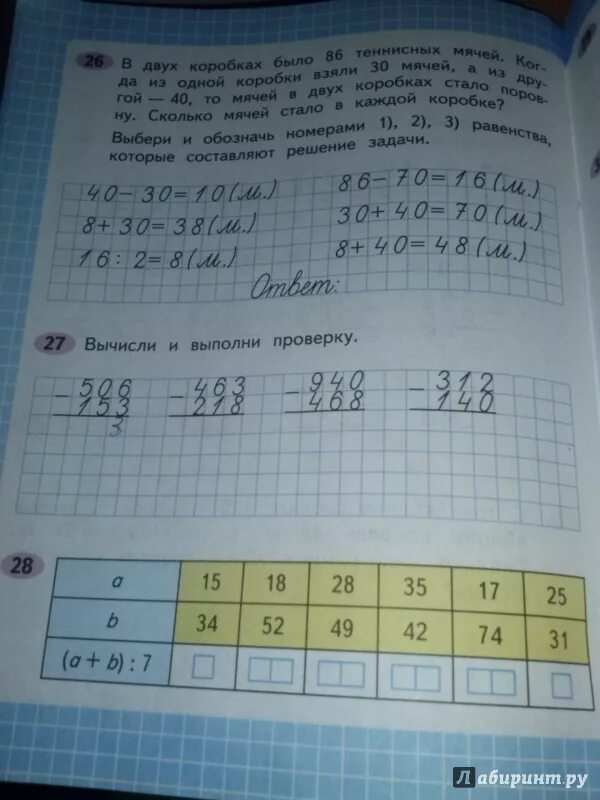 26 В двух коробках было 86 теннисных мячей. Ког-
да из одной коробки взяли 30 мячей, а из дру-
гой — 40, то мячей в двух коробках стало поров-
ну. Сколько мячей стало в каждой коробке?
Выбери и обозначь номерами 1), 2), 3) равенства,
которые составляют решение задачи.
40 – 30 = 10 (м.) 86 – 70 = 16 (м.)
8 + 30 = 38 (м.) 30 + 40 = 70 (м.)
16 : 2 = 8 (м.) 8 + 40 = 48 (м.)
Ответ:
27 Вычисли и выполни проверку.
– 506 – 463 – 940 – 312
153 218 468 140
3
28
a 15 18 28 35 17 25
b 34 52 49 42 74 31
(a + b) : 7
Лабиринт.ру